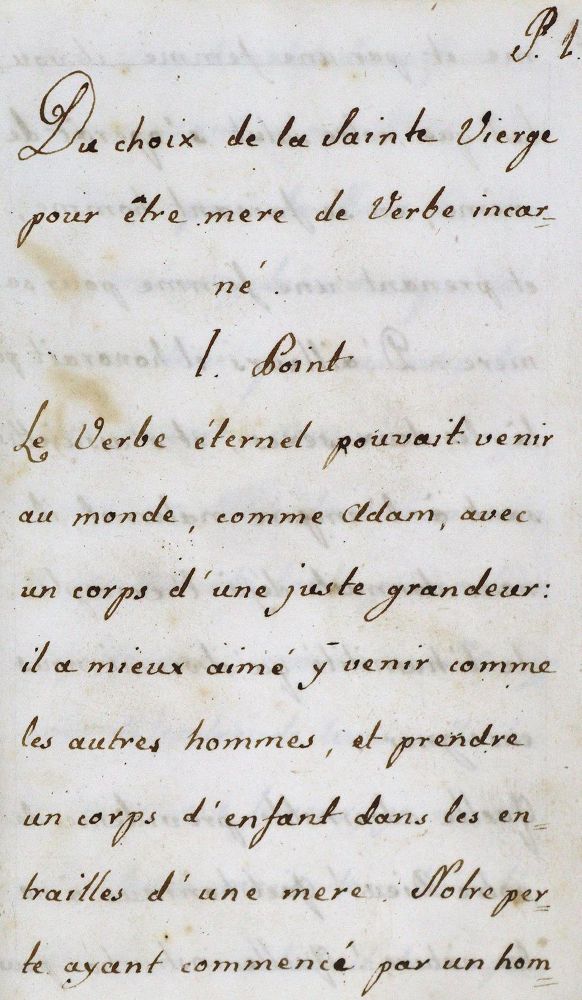 P. 1.
Du choix de la Sainte Vierge
pour être mere de Verbe incar=
né.
1. Point
Le Verbe éternel pouvait venir
au monde, comme Adam, avec
un corps d'une juste grandeur:
il a mieux aimé y venir comme
les autres hommes, et prendre
un corps d'enfant dans les en=
trailles d'une mere. Notre per=
te ayant commencé par un hom=